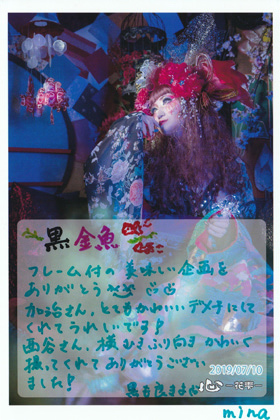 黒 金魚
フレーム付の美味しい企画を
ありがとう
加治さん、とてもかわいいデメキンにして
くれてうれしいです!
西谷さん、横むきふり向きかわいく
撮ってくれてありがとうござい
ました!
2019/07/10
心 一花車一
mina